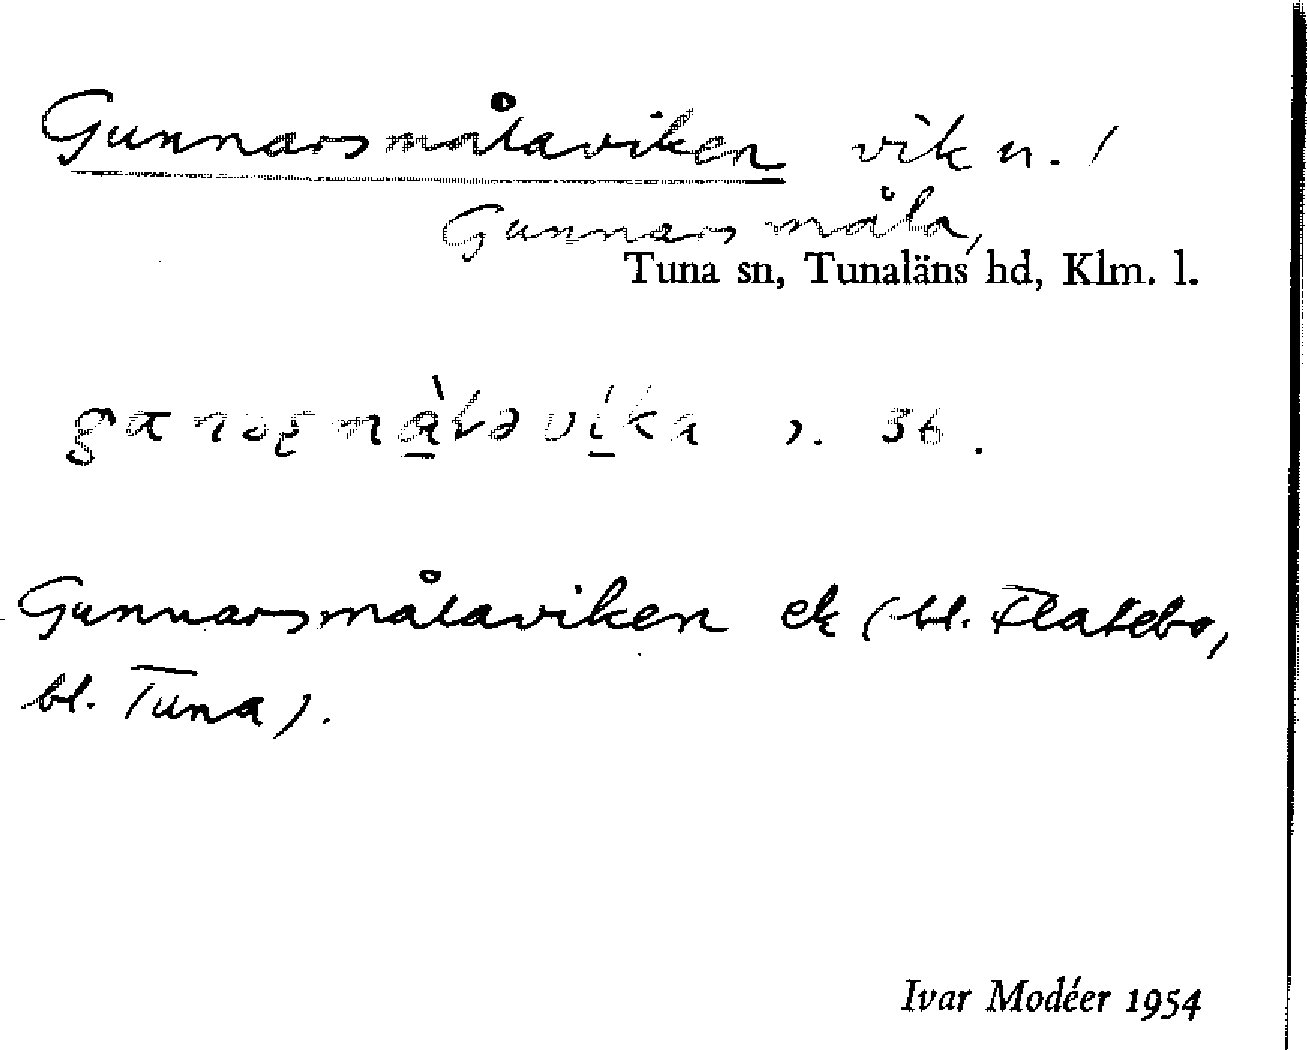 Gunnarsmålaviken vik n. /
Gunnarsmåla,
Tuna sn, Tunaläns hd, Klm. l.
36.
Gunnarsmålaviken ek (bl. Flatebo,
bl. Tuna).
Ivar Modéer 1954